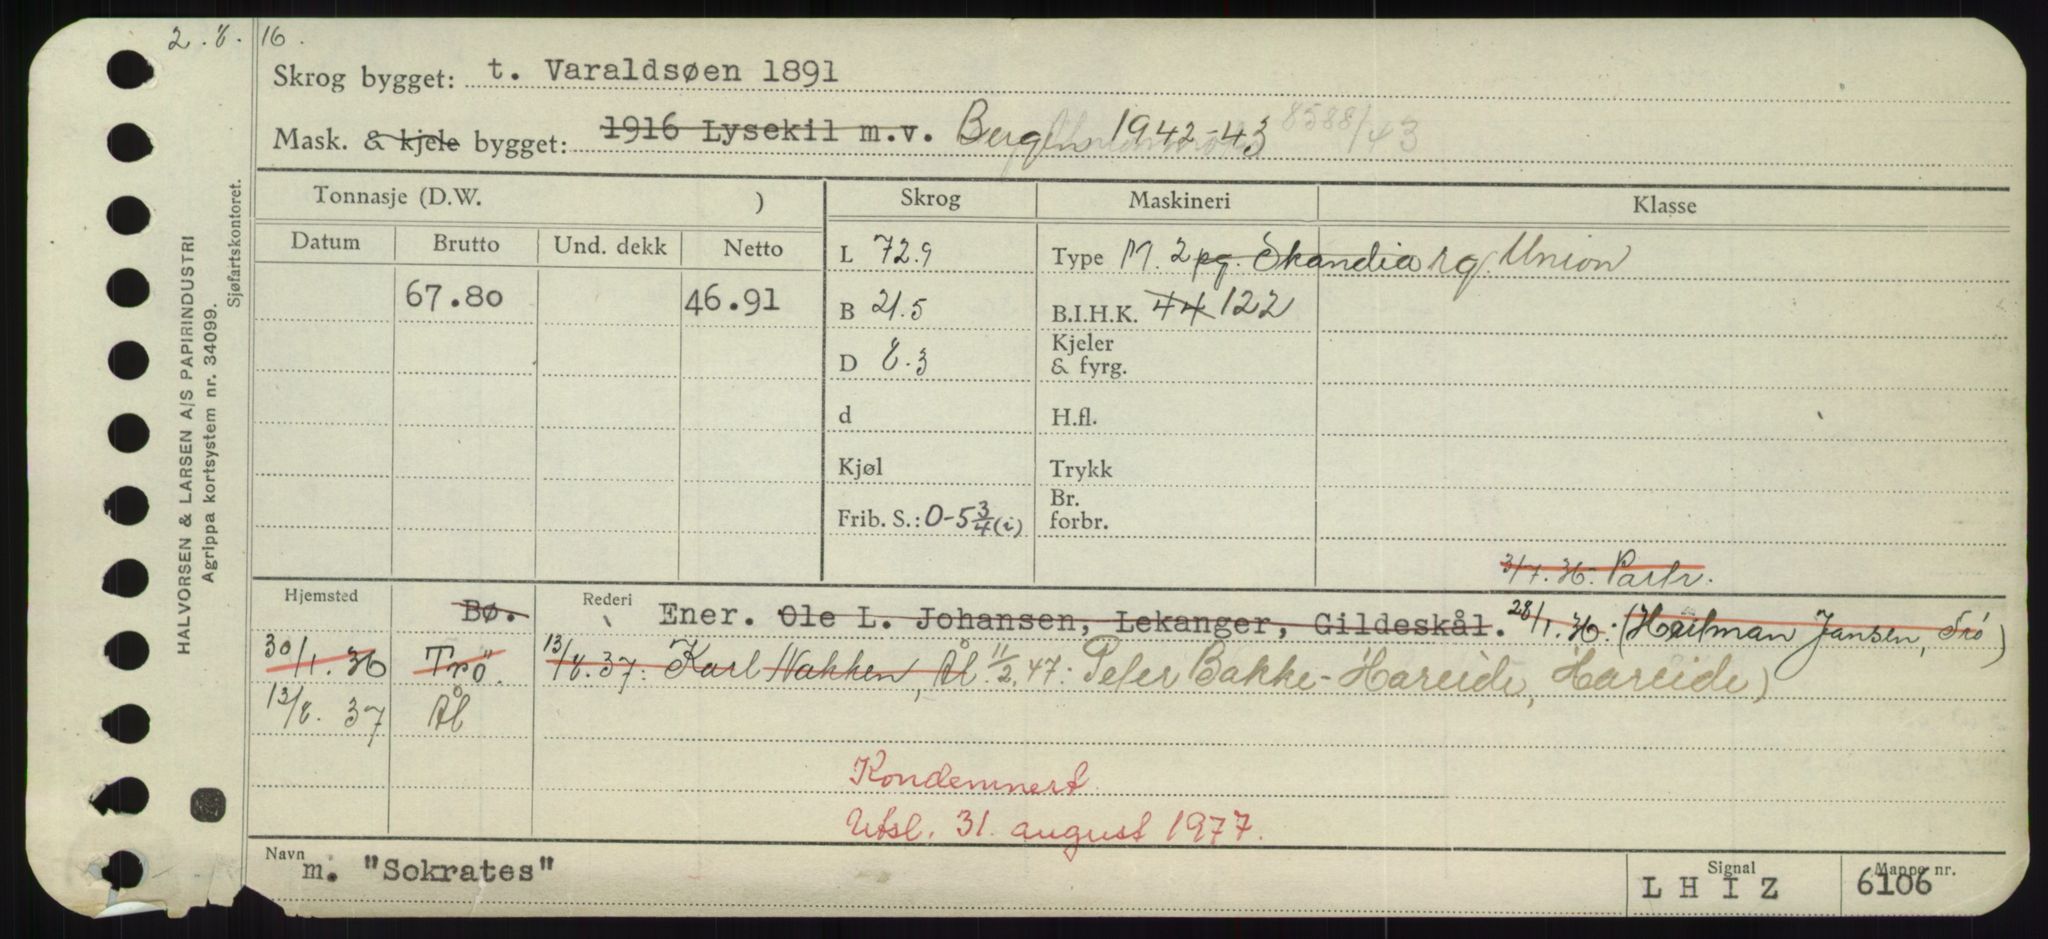 2.8.16.
Skrog bygget: t. Varaldsøen 1891
Mask. & kjele bygget: 1916 Lysekil m.v. Bergen 1942-43 8588/43
Tonnasje (D.W. ) Skrog Maskineri Klasse
Datum Brutto Und. dekk Netto
L 72.9 Type M. 2 pg. Skandia rg. Union
67.80 46.91 B 21.5 B.I.H.K. 44 122
D 8.3 Kjeler & fyrg.
d H.fl.
Kjøl Trykk
Frib. S.: 0-5 3/4 (i) Br. forbr.
3/7.36. Partr.
Hjemsted Bø. Rederi Ener. Ole L. Johansen, Lekanger, Gildeskål. 28/1.36: (Heilman Jansen, Trö)
30/1.36 Trö. 13/8.37: Karl Nakken, Ål 11/2.47: Peter Bakke-Hareide, Hareide)
13/8.37 Ål
Kondemnert.
Utsl. 31. august 1977.
Navn m. "Sokrates" Signal LHIZ Mappe nr. 6106
HALVORSEN & LARSEN A/S PAPIRINDUSTRI
Agrippa kortsystem nr. 34099.
Sjøfartskontoret.